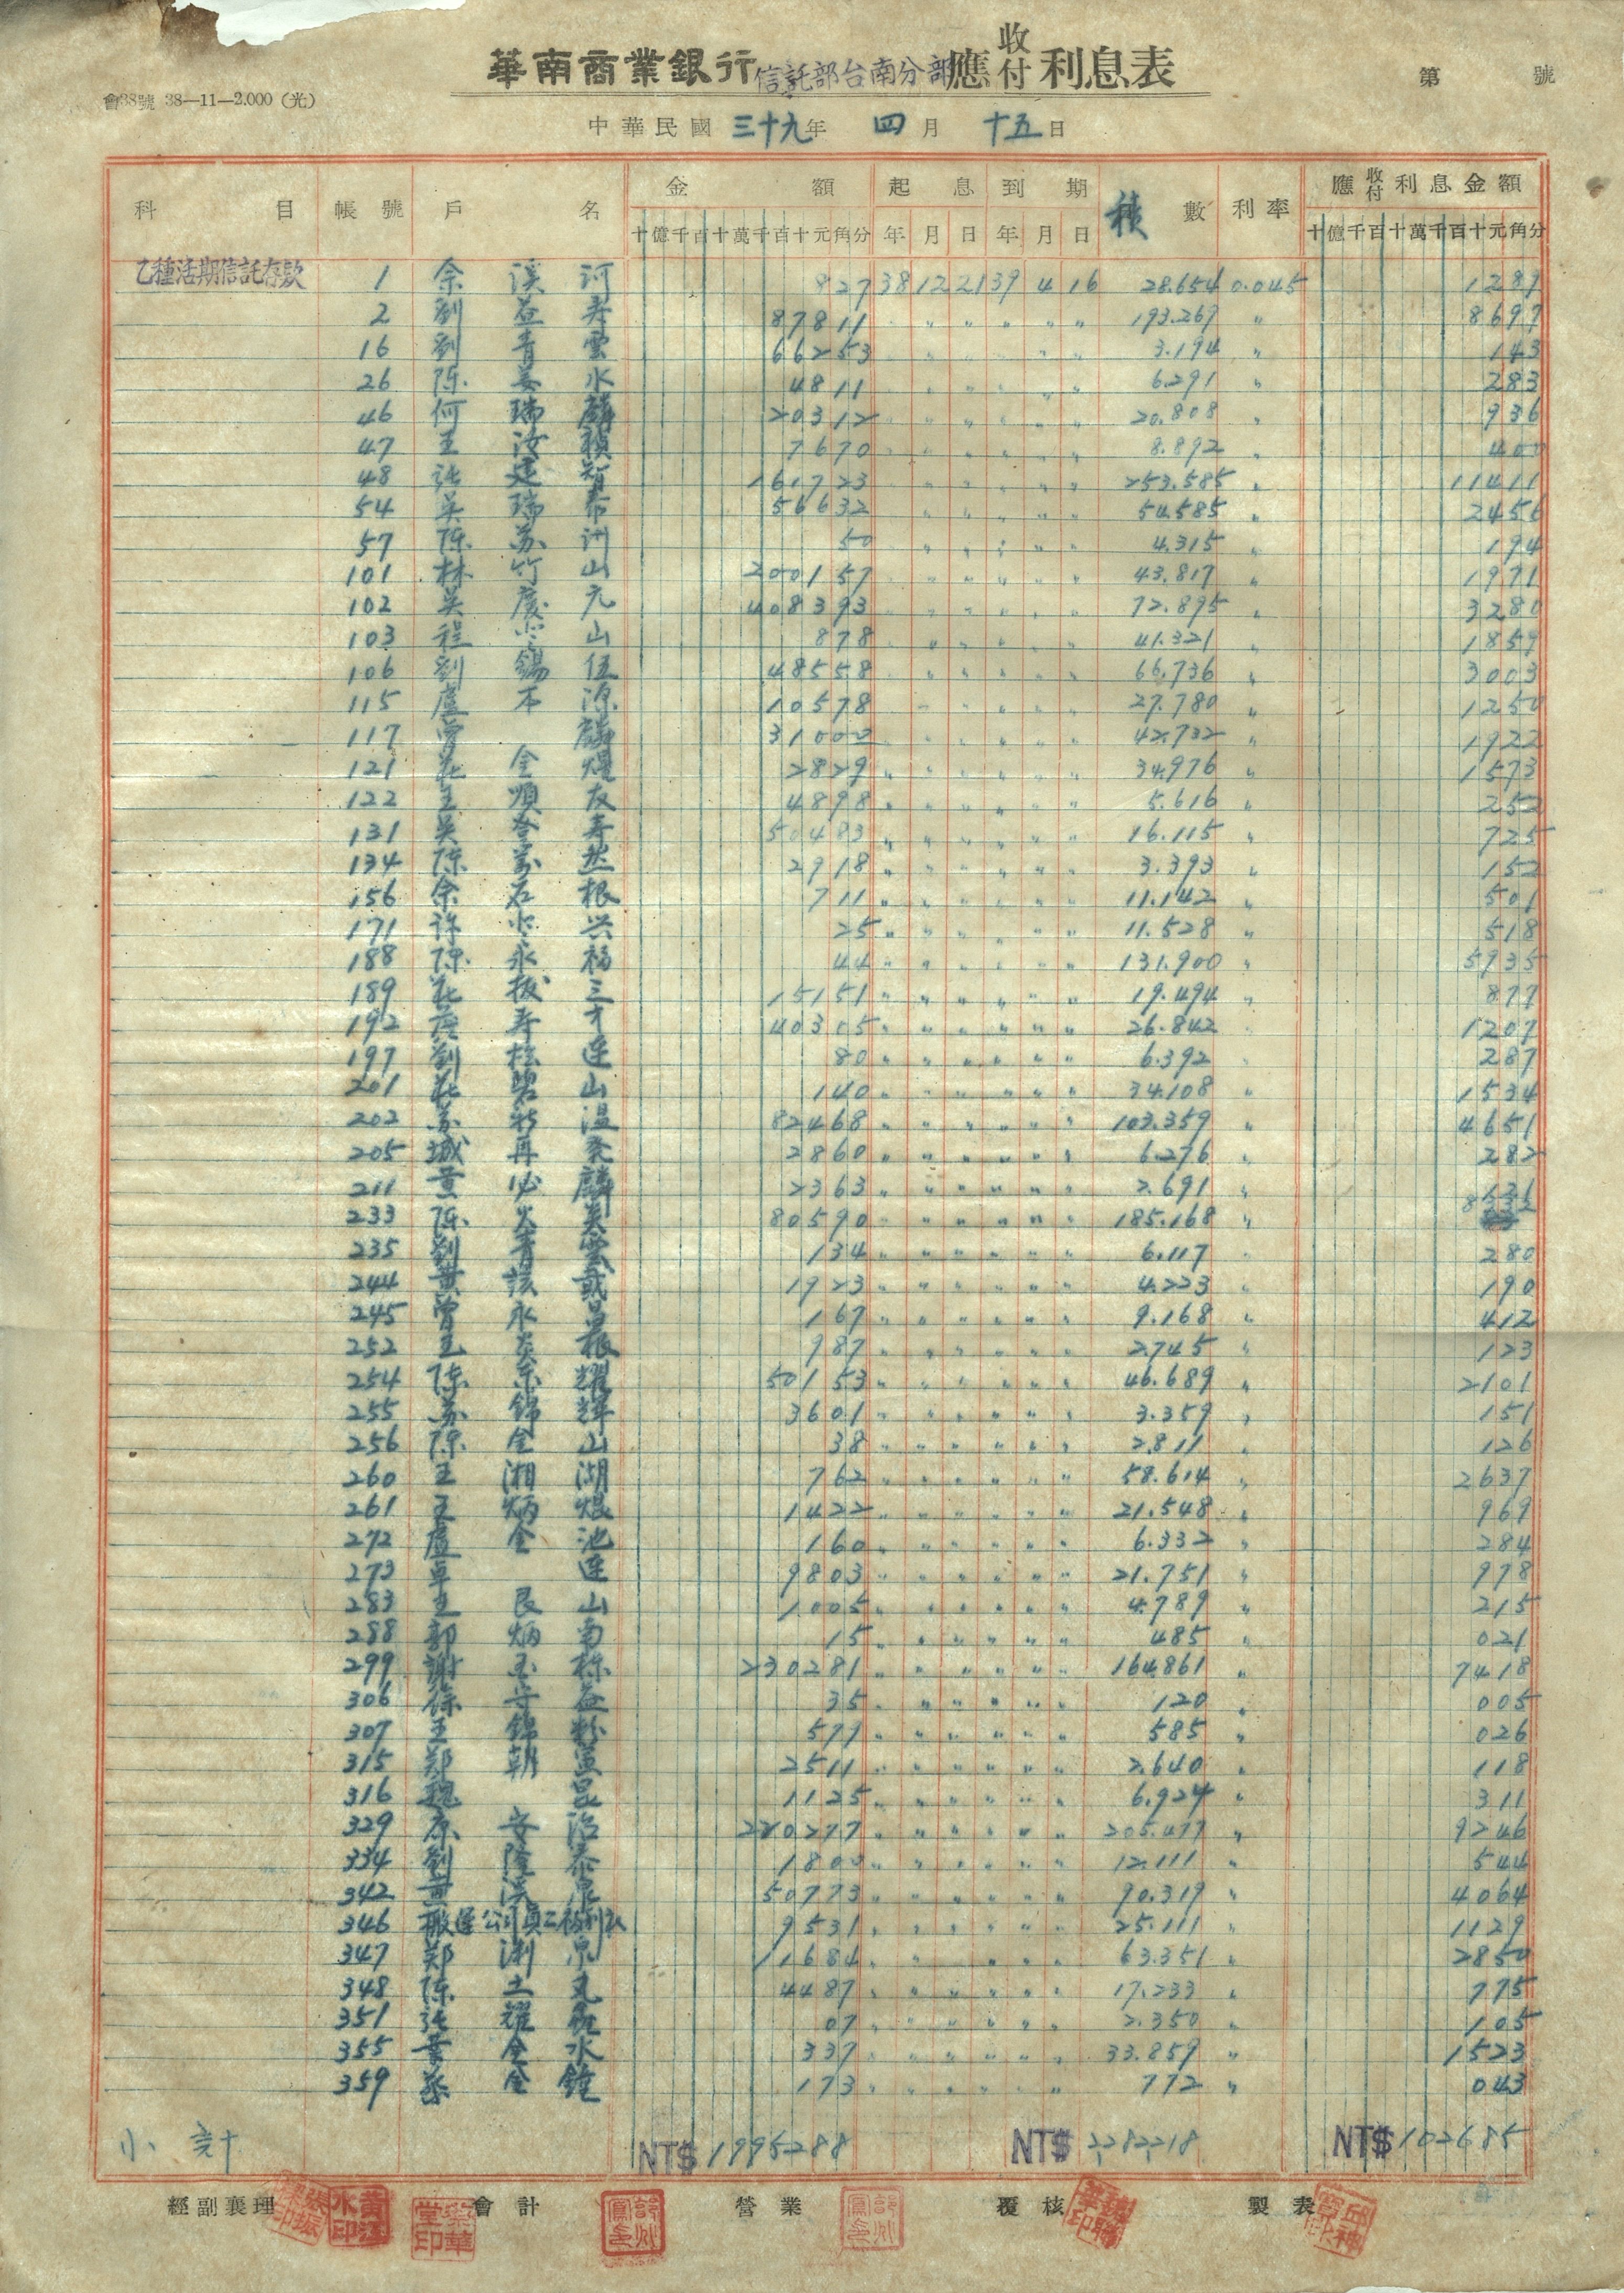 華南商業銀行信託部台南分部應收付利息表
第 號
會38號 38—11—2.000 (光)
中華民國 三十九年 四月 十五日
科目 帳號 戶名 金額 起息 到期 積數 利率 應收付利息金額
十億千百十萬千百十元角分 年 月 日 年 月 日 十億千百十萬千百十元角分
乙種活期信託存款 1 余溪河 827 38 12 21 39 4 16 28.654 0.045 1289
2 劉益寿 87811 " " " " " 193.269 " 8697
16 劉青雲 66253 " " " " 3.194 " 143
26 陈姜水 4811 " " " " " 6.291 " 283
46 何瑞麟 20312 " " " " " 20.808 " 936
47 王汝禎 7670 " " " " " 8.892 " 400
48 張建智 161723 " " " " " 253.585 " 11411
54 吴瑞泰 56632 " " " " " 54.585 " 2456
57 陈苏洲 50 " " " " " 4.315 " 194
101 林竹山 200157 " " " " " 43.817 " 1971
102 吴慶元 408393 " " " " " 72.895 " 3280
103 程 山 878 " " " " " 41.321 " 1859
106 劉錫伍 48558 " " " " " 66.736 " 3003
115 盧本源 10578 " " " " " 27.780 " 1250
117 曾麟 31000 " " " " " 42.732 " 1922
121 莊金煌 2829 " " " " " " 34.976 " 1573
122 王順友 4898 " " " " " " 5.616 " 252
131 吴登寿 50483 " " " " " " 16.115 " 725
134 陈芳 2918 " " " " " " 3.393 " 152
156 余石根 711 " " " " " " 11.142 " 501
171 許 兴 25 " " " " " " 11.528 " 518
188 陈永福 44 " " " " " " 131.900 " 5935
189 莊拔三 15151 " " " " " " 19.494 " 877
192 寿才 40305 " " " " " " 26.842 1207
197 劉松连 80 " " " " " " 6.392 287
201 莊碧山 140 " " " " " " 34.108 " 1534
202 苏新温 82468 " " " " " " 103.359 " 4651
205 城再 2860 " " " " " " 6.276 " 282
211 黄必麟 2363 " " " " " " 2.691 " 121
233 陈火英 80590 " " " " " " 185.168 " 8332
235 劉青雲 134 " " " " " " 6.117 280
244 黄該 1923 " " " " " " 4.223 " 190
245 曾永昌 167 " " " " " " 9.168 " 412
252 王炎根 987 " " " " " " 2.745 " 123
254 陈 耀 50153 " " " " " " 46.689 " 2101
255 苏錦輝 3601 " " " " " " 3.359 " 151
256 陈全山 38 " " " " " " 2.811 " 126
260 王湘湖 762 " " " " " " 58.614 " 2637
261 王炳焜 1422 " " " " " " 21.548 " 969
272 盧金池 160 " " " " " " 6.332 " 284
273 卓连 9803 " " " " " " 21.751 " 978
283 王艮山 1005 " " " " " " 4.789 " 215
288 郭炳南 15 " " " " " " 485 " 021
299 謝玉栋 230281 " " " " " " 164.861 " 7418
306 徐守益 35 " " " " " " 120 " 005
307 王錦粉 577 " " " " " " 585 " 026
315 郑朝 2511 " " " " " " 2.640 " 118
316 魏昆 1125 " " " " " " 6.924 " 311
329 原安治 220277 " " " " " " 205.477 " 9246
334 劉隆泰 1800 " " " " " " 12.111 " 544
342 黄溪泉 50773 " " " " " " 90.319 " 4064
346 搬運公司員工福利社 9531 " " " " " " 25.111 " 1129
347 郑渊泉 11684 " " " " " 63.351 " 2850
348 陈土 4487 " " " " " " 17.233 " 775
351 張耀 07 " " " " " " 2.350 " 105
355 葉金水 337 " " " " " " 33.859 " 1523
359 蔡金鐘 173 " " " " " " 772 " 043
小計 NT$ 1995288 NT$ 2,282,218 NT$ 102685
經副襄理 會計 營業 覆核 製表